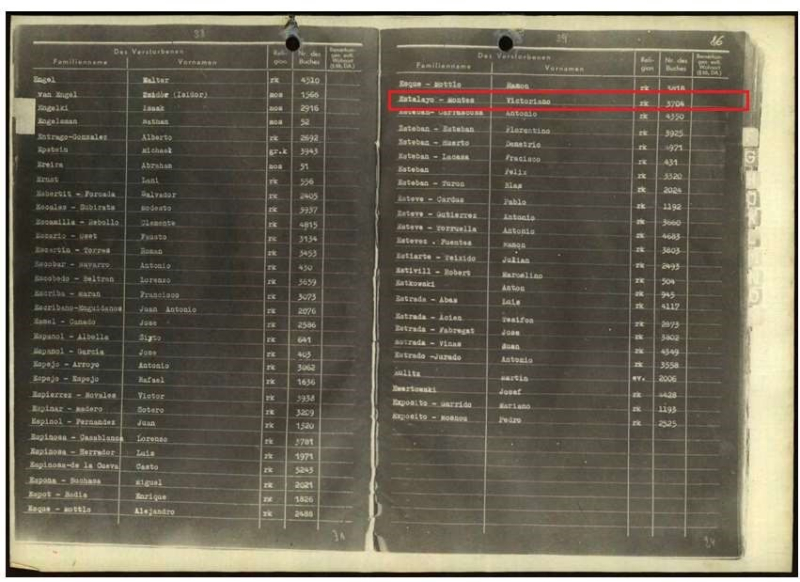 Des Verstorbenen
Familienname Vornamen Reli-gion Nr. des Buches
Engel Walter rk 4310
van Engel (Isidor) mos 1568
Engelki Isaak mos 2916
Engelsman Nathan mos 52
Entrago-Gonzalez Alberto rk 2692
Epstein Michael gr.k 3943
Ereira Abraham mos 31
Ernst rk 556
Salvador rk 2405
Escales - Subirats Modesto rk 3937
Escamilla - Rebollo Clemente rk 4815
Escario - Fausto rk 3134
Escartin - Torres Roman rk 3453
Escobar - Navarro Antonio rk 430
Escobedo - Beltran Lorenzo rk 3639
Escriba - Duran Francisco rk 3073
Juan Antonio rk 2076
Jose rk 2586
Espanol - Albella Sixto rk 641
Espanol - Garcia Jose rk 403
Espejo - Arroyo Antonio rk 3062
Espejo - Espejo Rafael rk 1636
Espierrez - Victor rk 3938
Espinar - Madero Sotero rk 3209
Espinol - Fernandez Juan rk 1520
Espinosa - Casablanca Lorenzo rk 3781
Espinosa - Herrador Luis rk 1971
Espinosa-de la Cueva Casto rk 3243
Miguel rk 2021
Espot - Rodia Enrique rk 1826
Esque - Mottle Alejandro rk 2488
86
Des Verstorbenen
Familienname Vornamen Reli-gion Nr. des Buches
Esque - Mottle Ramon rk
Estalayo - Montes Victoriano rk 3704
Esteban- Carrascosa Antonio rk 4350
Esteban - Esteban Florentino rk 3925
Esteban - Huerto Demetrio rk 4971
Esteban - Lacasa rk 431
Esteban Felix rk 3320
Esteban - Blas rk 2024
Esteve - Cardus Pablo rk 1192
Esteve - Gutierrez Antonio rk 3660
Esteve - Torruella Antonio rk 4683
Estevez . Fuentes Ramon rk 3803
Estiarte - Teixido Julian rk 2493
Estivill - Robert Marcelino rk 504
Estkowski Anton rk 945
Estrada - Abas Luis rk 4117
Estrada - Acien rk 2873
Estrada - Fabregat Jose rk 3802
Estrada - Vinas Juan rk 4349
Estrado -Jurado Antonio rk 3558
Eulitz Martin ev. 2006
Ewertowski Josef rk 4428
Exposito - Garrido Mariano rk 1193
Exposito - Pedro rk 2525